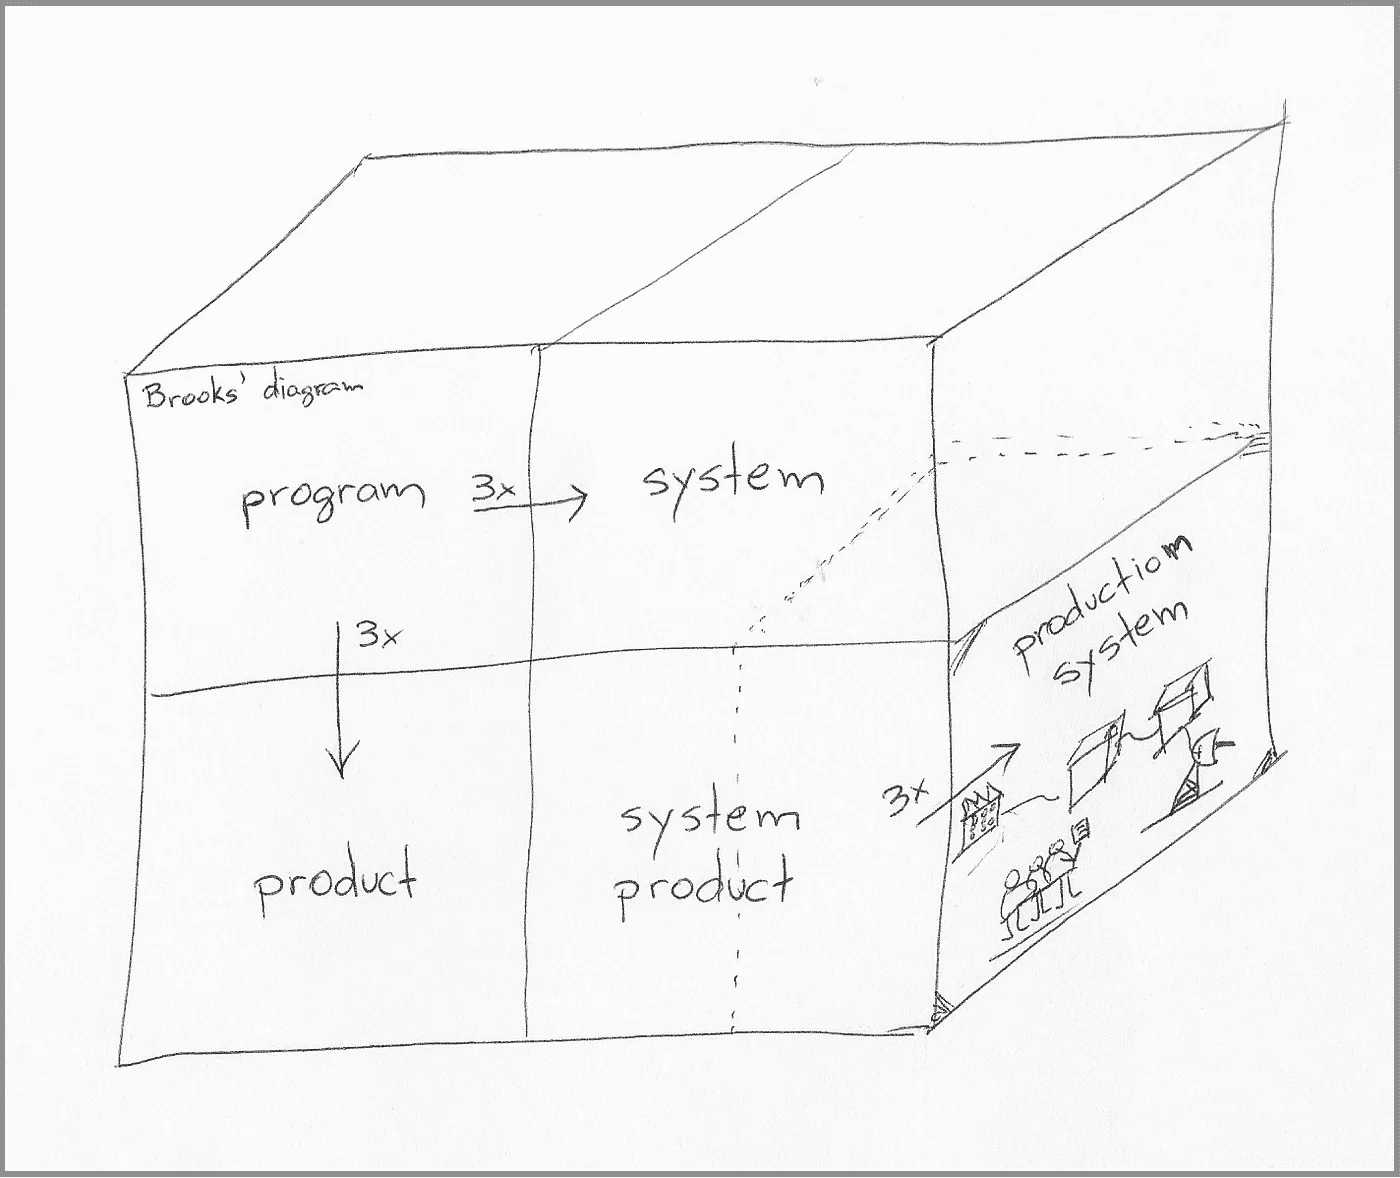 Brooks' diagram
program
3x
system
3x
product
system
product
3x
production
system